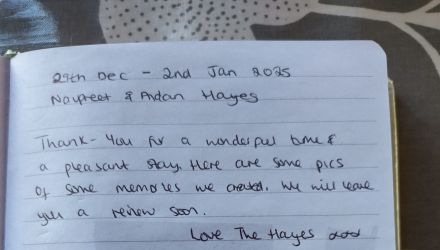 29th Dec - 2nd Jan 2025
Navpreet & Andan Hayes
Thank-you for a wonderful time &
a pleasant stay. Here are some pics
of some memories we created. We will leave
you a review soon.
Love The Hayes